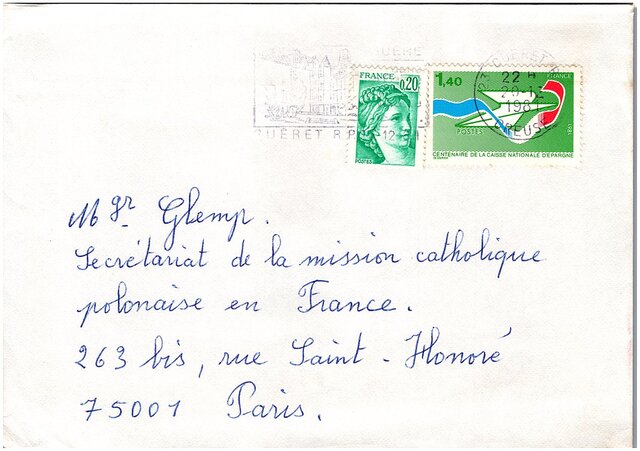 GUÉRET
GUÉRET R.P.
FRANCE
0,20
POSTES
1,40
FRANCE
POSTES
CENTENAIRE DE LA CAISSE NATIONALE D'ÉPARGNE
GUÉRET
22 H
1981
CREUSE
Mgr Glemp.
Secrétariat de la mission catholique
polonaise en France.
263 bis, rue Saint-Honoré
75001 Paris.